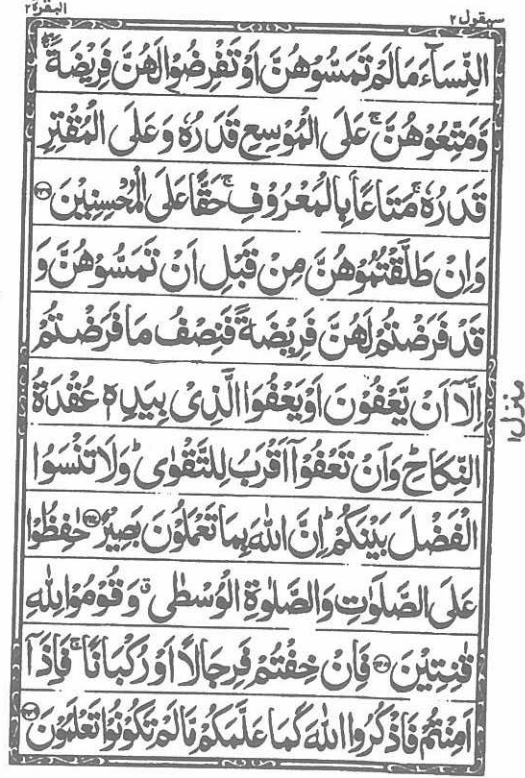 البقرة ٢
سيقول ٢
النِّسَآءَ مَا لَمْ تَمَسُّوْهُنَّ اَوْ تَفْرِضُوْا لَهُنَّ فَرِيْضَةً ۖۚ
وَّمَتِّعُوْهُنَّ ۚ عَلَى الْمُوْسِعِ قَدَرُهٗ وَعَلَى الْمُقْتِرِ
قَدَرُهٗ ۚ مَتَاعًاۢ بِالْمَعْرُوْفِ ۚ حَقًّا عَلَى الْمُحْسِنِيْنَ ۝۲۳۶
وَاِنْ طَلَّقْتُمُوْهُنَّ مِنْ قَبْلِ اَنْ تَمَسُّوْهُنَّ وَ
قَدْ فَرَضْتُمْ لَهُنَّ فَرِيْضَةً فَنِصْفُ مَا فَرَضْتُمْ
اِلَّاۤ اَنْ يَّعْفُوْنَ اَوْ يَعْفُوَا الَّذِىْ بِيَدِهٖ عُقْدَةُ
النِّكَاحِ ؕ وَاَنْ تَعْفُوْۤا اَقْرَبُ لِلتَّقْوٰى ؕ وَلَا تَنْسَوُا
الْفَضْلَ بَيْنَكُمْ ؕ اِنَّ اللّٰهَ بِمَا تَعْمَلُوْنَ بَصِيْرٌ ۝۲۳۷ حٰفِظُوْا
عَلَى الصَّلَوٰتِ وَالصَّلٰوةِ الْوُسْطٰى ۗ وَقُوْمُوْا لِلّٰهِ
قٰنِتِيْنَ ۝۲۳۸ فَاِنْ خِفْتُمْ فَرِجَالًا اَوْ رُكْبَانًا ۚ فَاِذَاۤ
اَمِنْتُمْ فَاذْكُرُوا اللّٰهَ كَمَا عَلَّمَكُمْ مَّا لَمْ تَكُوْنُوْا تَعْلَمُوْنَ ۝۲۳۹
منزل ۱